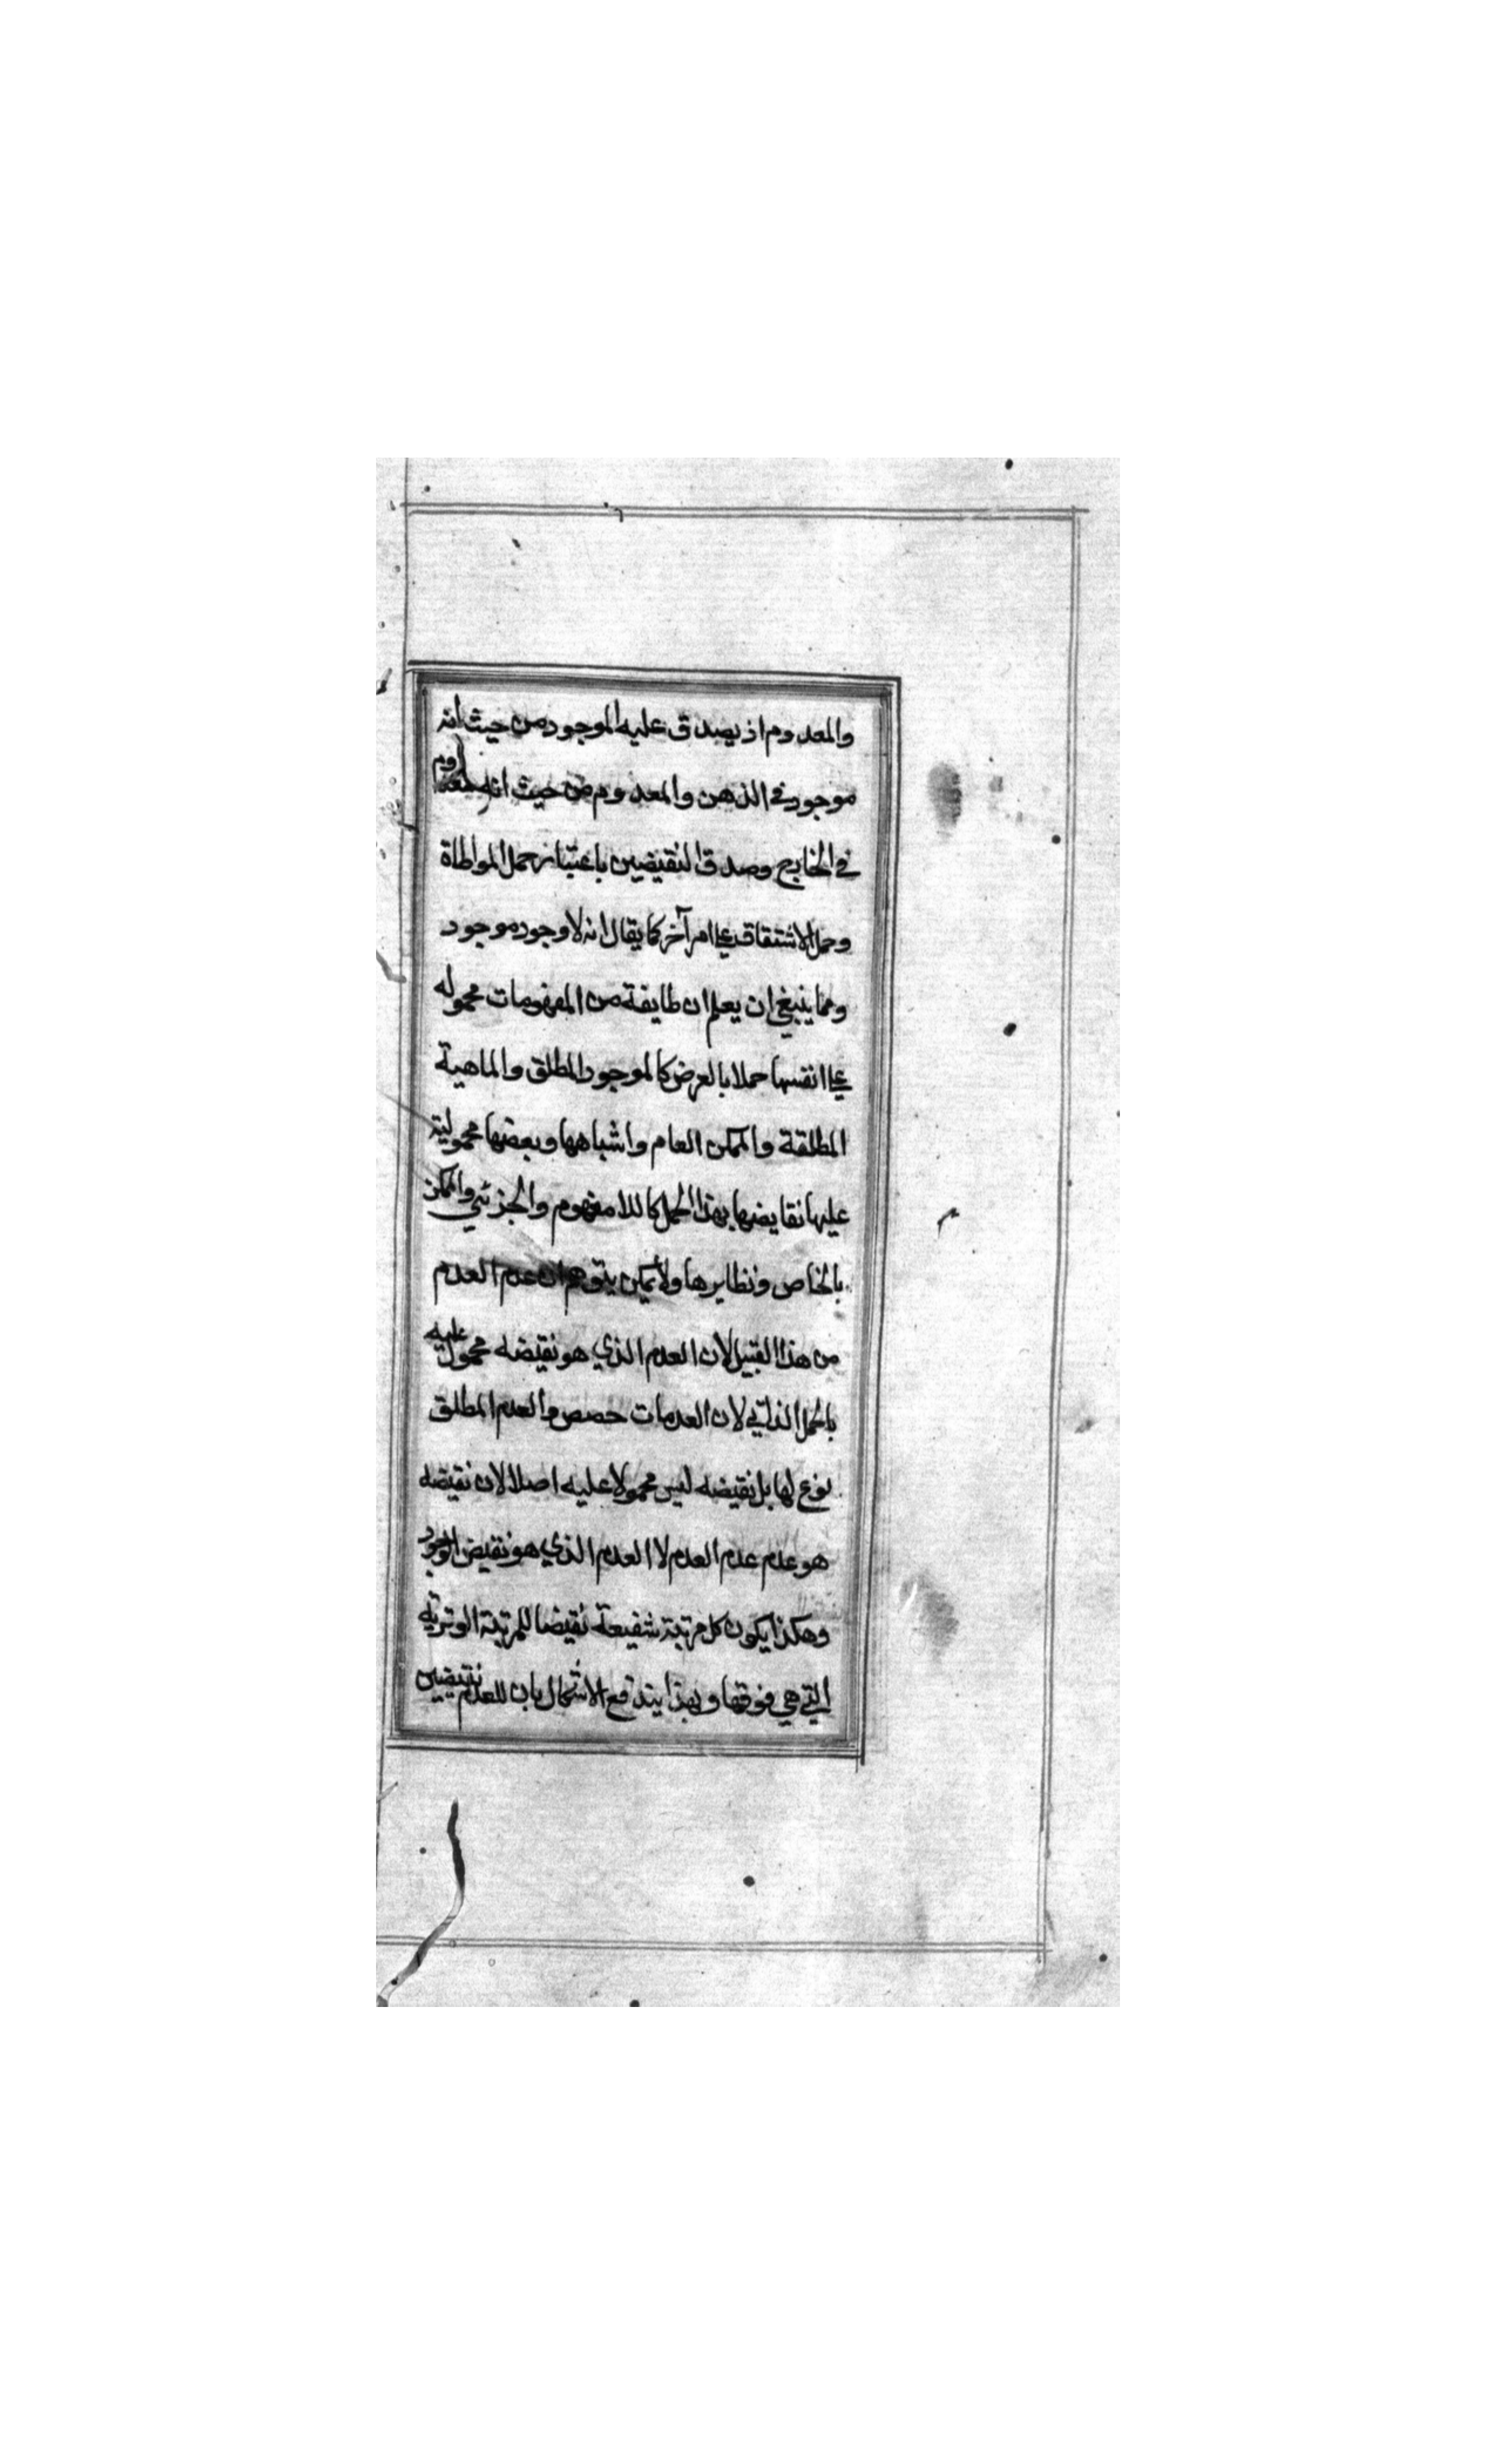 والمعدوم اذ يصدق عليه الموجود من حيث انه
موجود في الذهن والمعدوم من حيث انه معدوم
في الخارج وصدق النقيضين باعتبار حمل المواطاة
وحمل الاشتقاق على امر آخر كما يقال انه لا وجود موجود
ومما ينبغي ان يعلم ان طايفة من المفهومات محموله
على انفسها حملا بالعرض كالموجود المطلق والماهية
المطلقة والممكن العام واشباهها وبعضها محمولية
عليها نقايضها بهذا الحمل كاللا مفهوم والجزئي والممكن
بالخاص ونظايرها ولا يمكن يتوهم ان عدم العدم
من هذا القبيل لان العدم الذي هو نقيضه محمول عليه
بالحمل الذاتي لان العدمات حصص والعدم المطلق
نوع لها بل نقيضه ليس محمولا عليه اصلا لان نقيضه
هو عدم عدم العدم لا العدم الذي هو نقيض الوجود
وهكذا يكون كل مرتبة شفيعة نقيضا للمرتبة الوترية
التي هي فوقها وبهذا يندفع الاشكال بان للعدم نقيضين